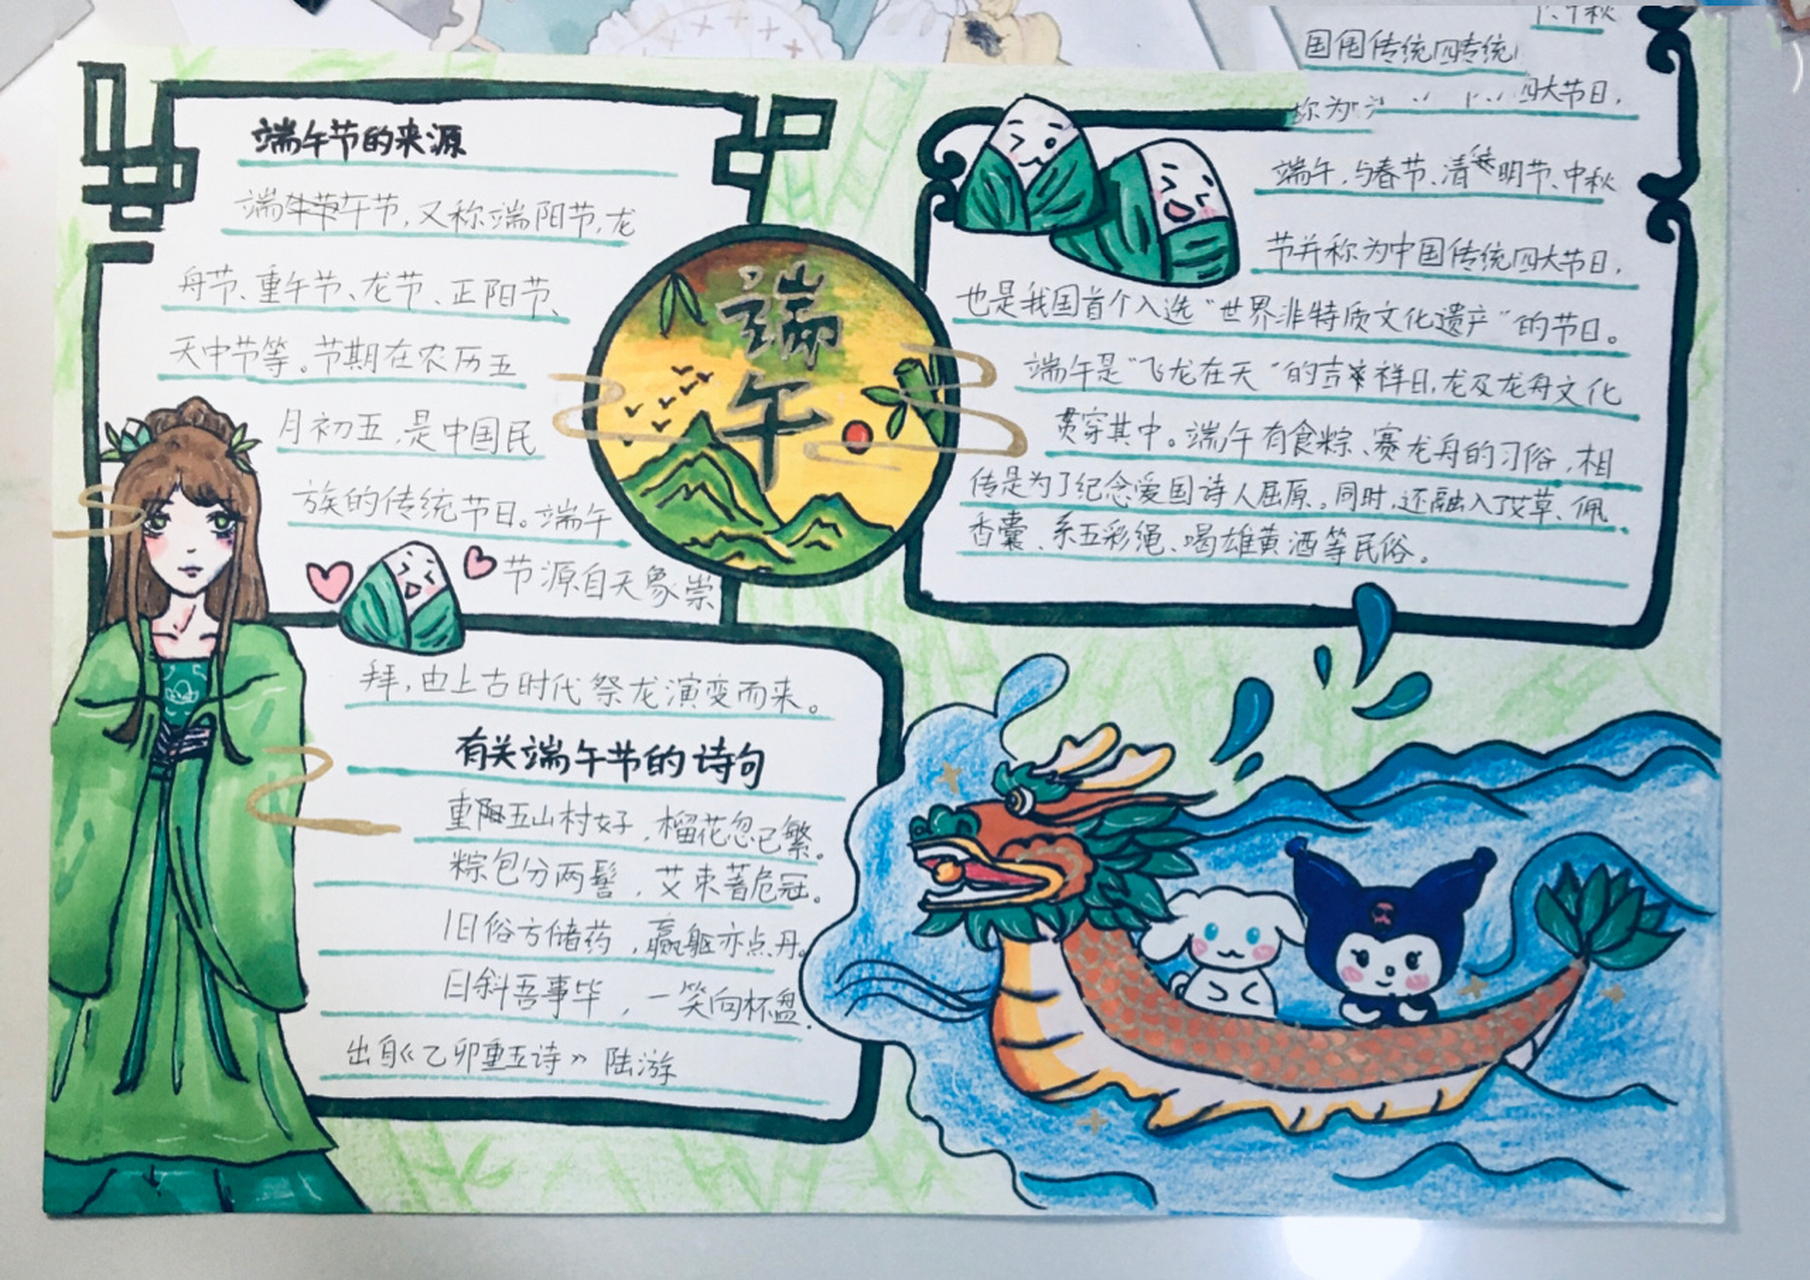 端午节的来源
端午节，又称端阳节，龙
舟节、重午节、龙节、正阳节、
天中节等。节期在农历五
月初五，是中国民
族的传统节日。端午
节源自天象崇
拜，由上古时代祭龙演变而来。
有关端午节的诗句
重阳五山村好，榴花忽已繁。
粽包分两髻，艾束著危冠。
旧俗方储药，羸躯亦点丹。
日斜吾事毕，一笑向杯盘.
出自《乙卯重五诗》陆游
端
午
国传统四传统
称为
四大节日，
端午，与春节、清明节、中秋
节并称为中国传统四大节日，
也是我国首个入选“世界非特质文化遗产”的节日。
端午是“飞龙在天”的吉祥日，龙及龙舟文化
贯穿其中。端午有食粽、赛龙舟的习俗，相
传是为了纪念爱国诗人屈原。同时，还融入了艾草、佩
香囊、系五彩绳、喝雄黄酒等民俗。